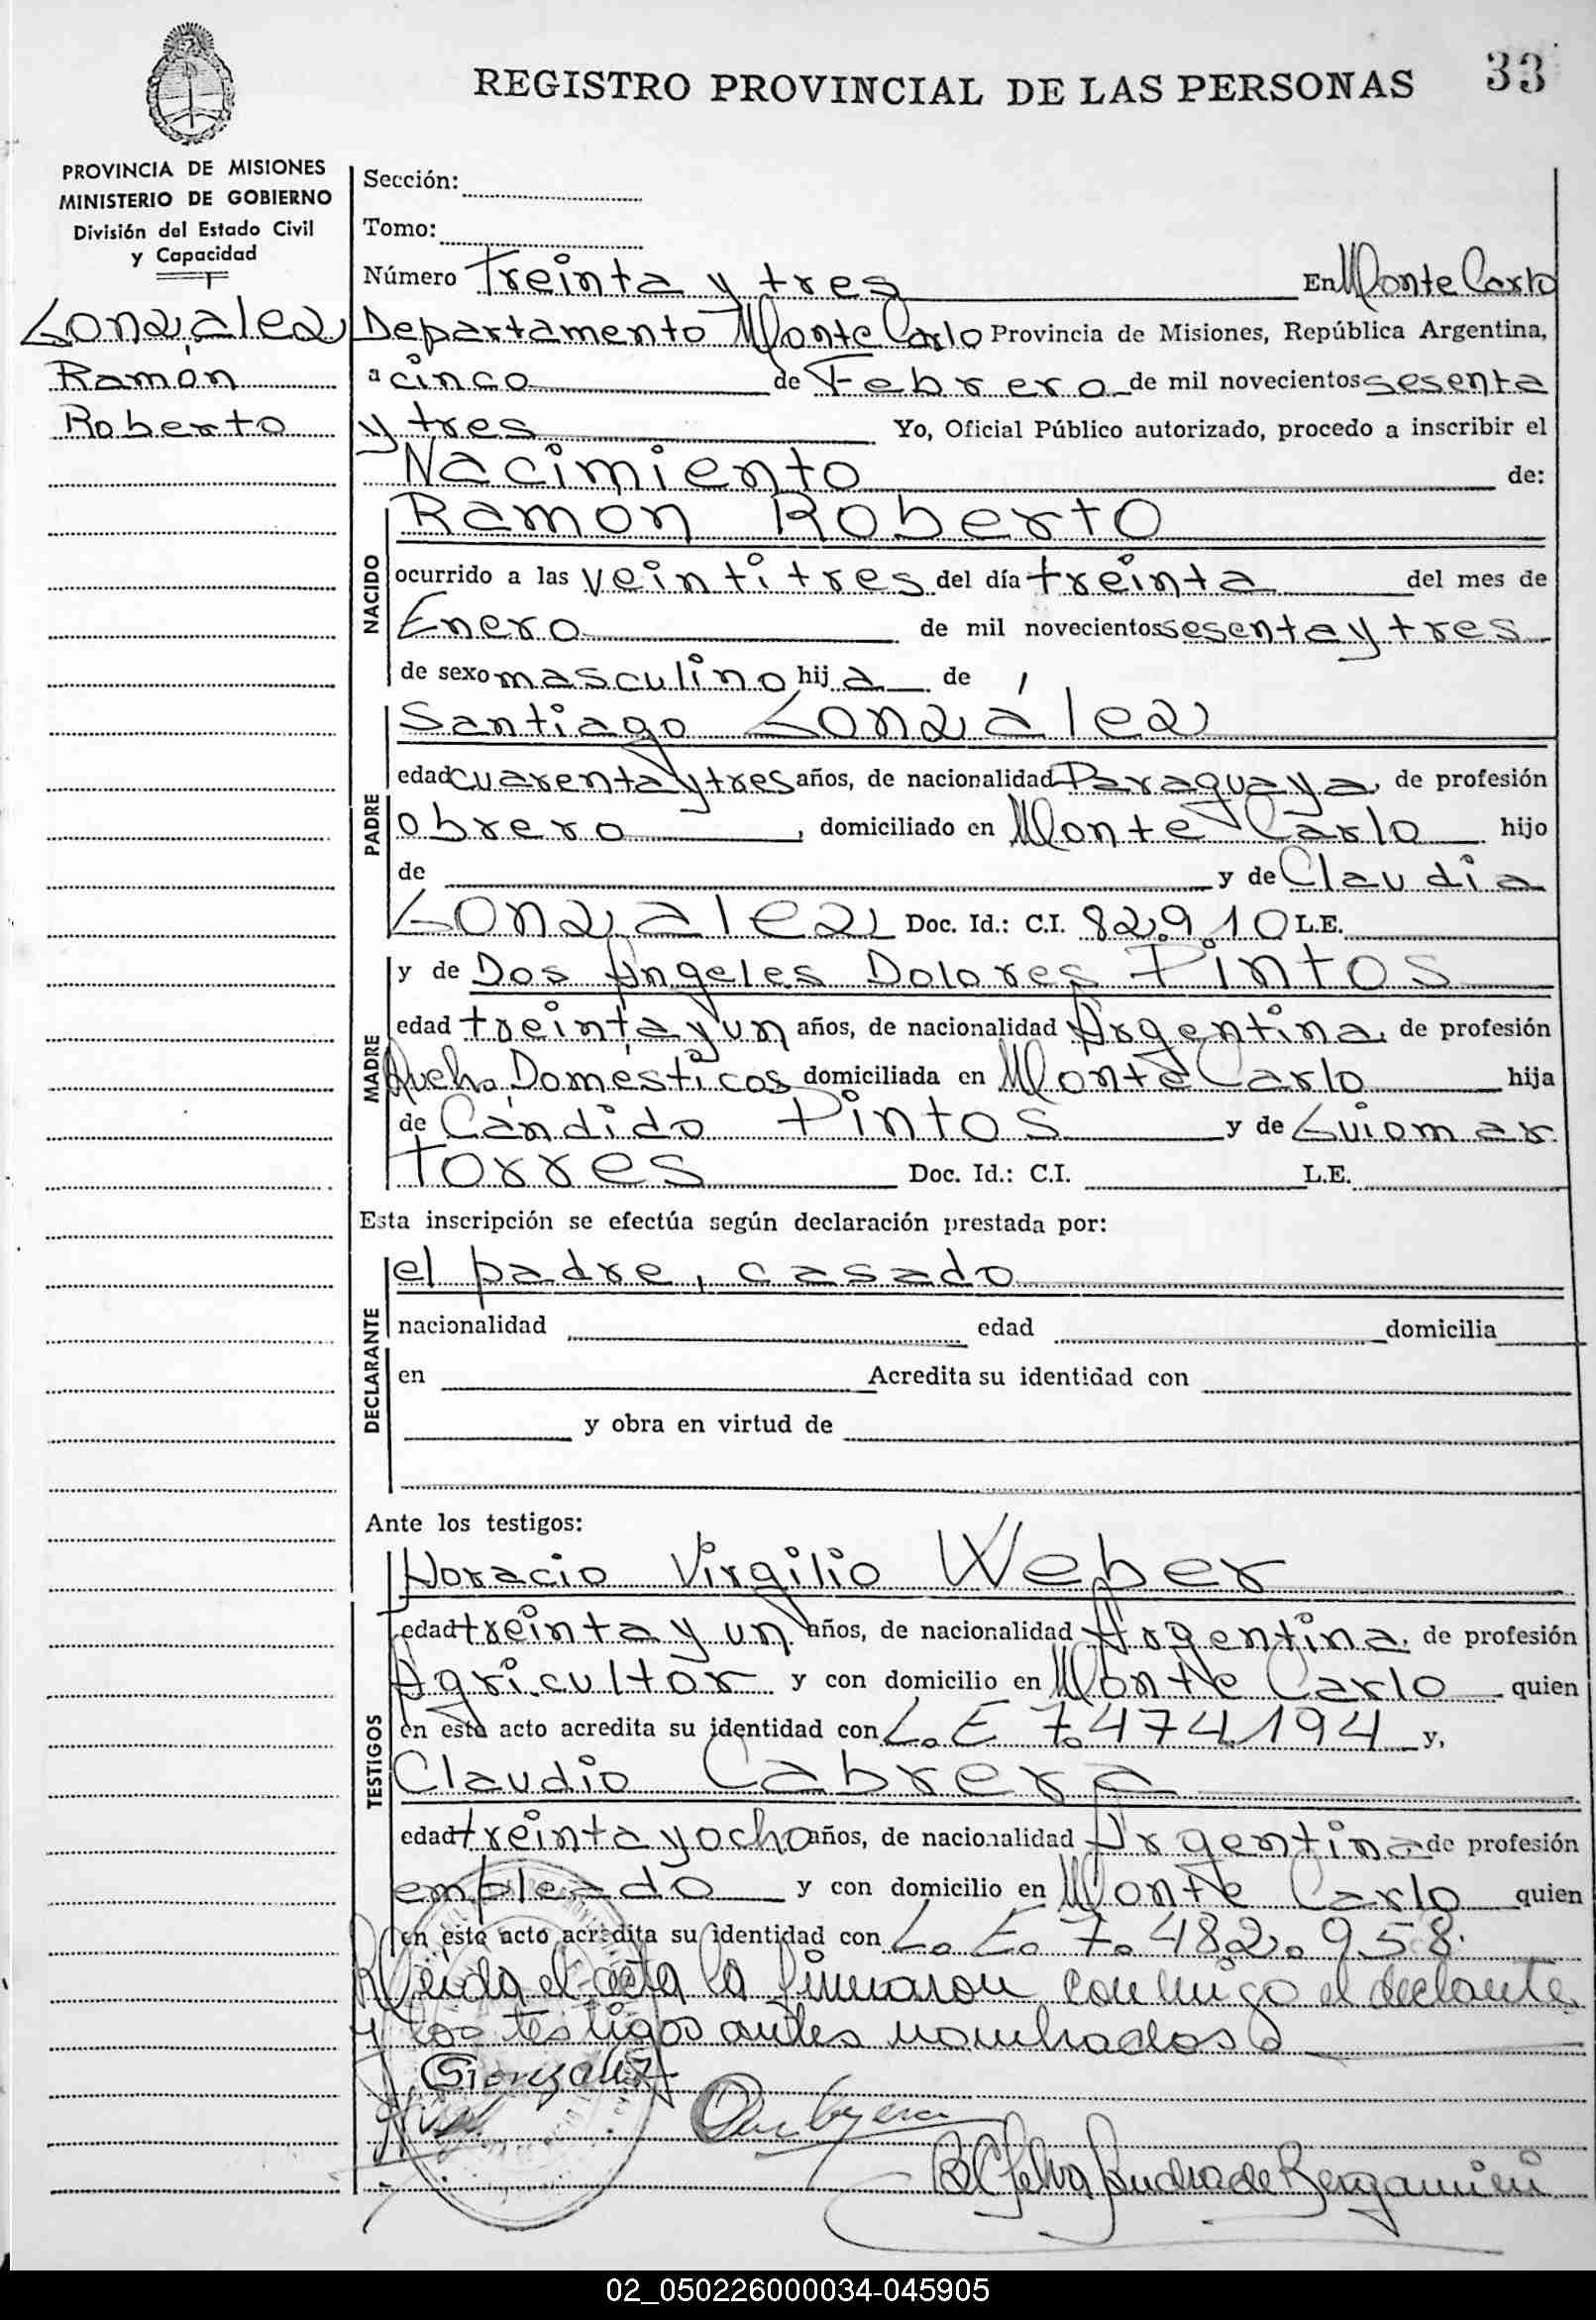 REGISTRO PROVINCIAL DE LAS PERSONAS 33
PROVINCIA DE MISIONES
MINISTERIO DE GOBIERNO
División del Estado Civil
y Capacidad
González
Ramón
Roberto
Sección:
Tomo:
Número Treinta y tres En Monte Carlo
Departamento Monte Carlo Provincia de Misiones, República Argentina,
a cinco de Febrero de mil novecientos sesenta
y tres Yo, Oficial Público autorizado, procedo a inscribir el
Nacimiento de:
NACIDO
Ramón Roberto
ocurrido a las veintitres del día treinta del mes de
Enero de mil novecientos sesenta y tres
de sexo masculino hij a de
PADRE
Santiago González
edad cuarenta y tres años, de nacionalidad Paraguaya, de profesión
obrero, domiciliado en Monte Carlo hijo
de y de Claudia
González Doc. Id.: C.I. 82.910 L.E.
MADRE
y de Dos Angeles Dolores Pintos
edad treinta y un años, de nacionalidad Argentina, de profesión
Queh. Domésticos domiciliada en Monte Carlo hija
de Cándido Pintos y de Guiomar
Torres Doc. Id.: C.I. L.E.
Esta inscripción se efectúa según declaración prestada por:
DECLARANTE
el padre, casado
nacionalidad edad domicilia
en Acredita su identidad con
y obra en virtud de
Ante los testigos:
TESTIGOS
Horacio Virgilio Weber
edad treinta y un años, de nacionalidad Argentina, de profesión
Agricultor y con domicilio en Monte Carlo quien
en este acto acredita su identidad con L. E 7.474.194 y,
Claudio Cabrera
edad treinta y ocho años, de nacionalidad Argentina de profesión
empleado y con domicilio en Monte Carlo quien
en este acto acredita su identidad con L. E. 7.482.958.
Leída el acta la firmaron conmigo el declante
y los testigos antes nombrados
Gonzalez
de Bergamini
02_050226000034-045905